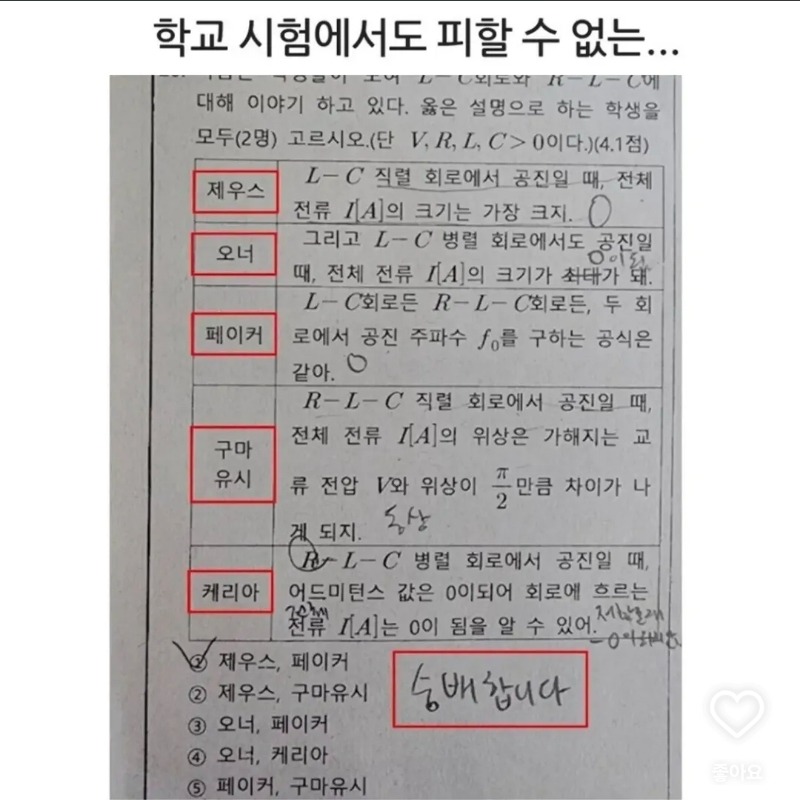 학교 시험에서도 피할 수 없는...
L-C회로와 R-L-C에
대해 이야기 하고 있다. 옳은 설명으로 하는 학생을
모두(2명) 고르시오.(단 V, R, L, C > 0이다.)(4.1점)
제우스
L-C 직렬 회로에서 공진일 때, 전체
전류 I[A]의 크기는 가장 크지. O
오너
그리고 L-C 병렬 회로에서도 공진일
때, 전체 전류 I[A]의 크기가 최대가 돼.
0이 되
페이커
L-C회로든 R-L-C회로든, 두 회
로에서 공진 주파수 f₀를 구하는 공식은
같아. O
구마
유시
R-L-C 직렬 회로에서 공진일 때,
전체 전류 I[A]의 위상은 가해지는 교
류 전압 V와 위상이 π/2만큼 차이가 나
게 되지. 동상
케리아
R-L-C 병렬 회로에서 공진일 때,
어드미턴스 값은 0이되어 회로에 흐르는
전류 I[A]는 0이 됨을 알 수 있어.
① 제우스, 페이커
② 제우스, 구마유시
③ 오너, 페이커
④ 오너, 케리아
⑤ 페이커, 구마유시
숭배합니다
좋아요